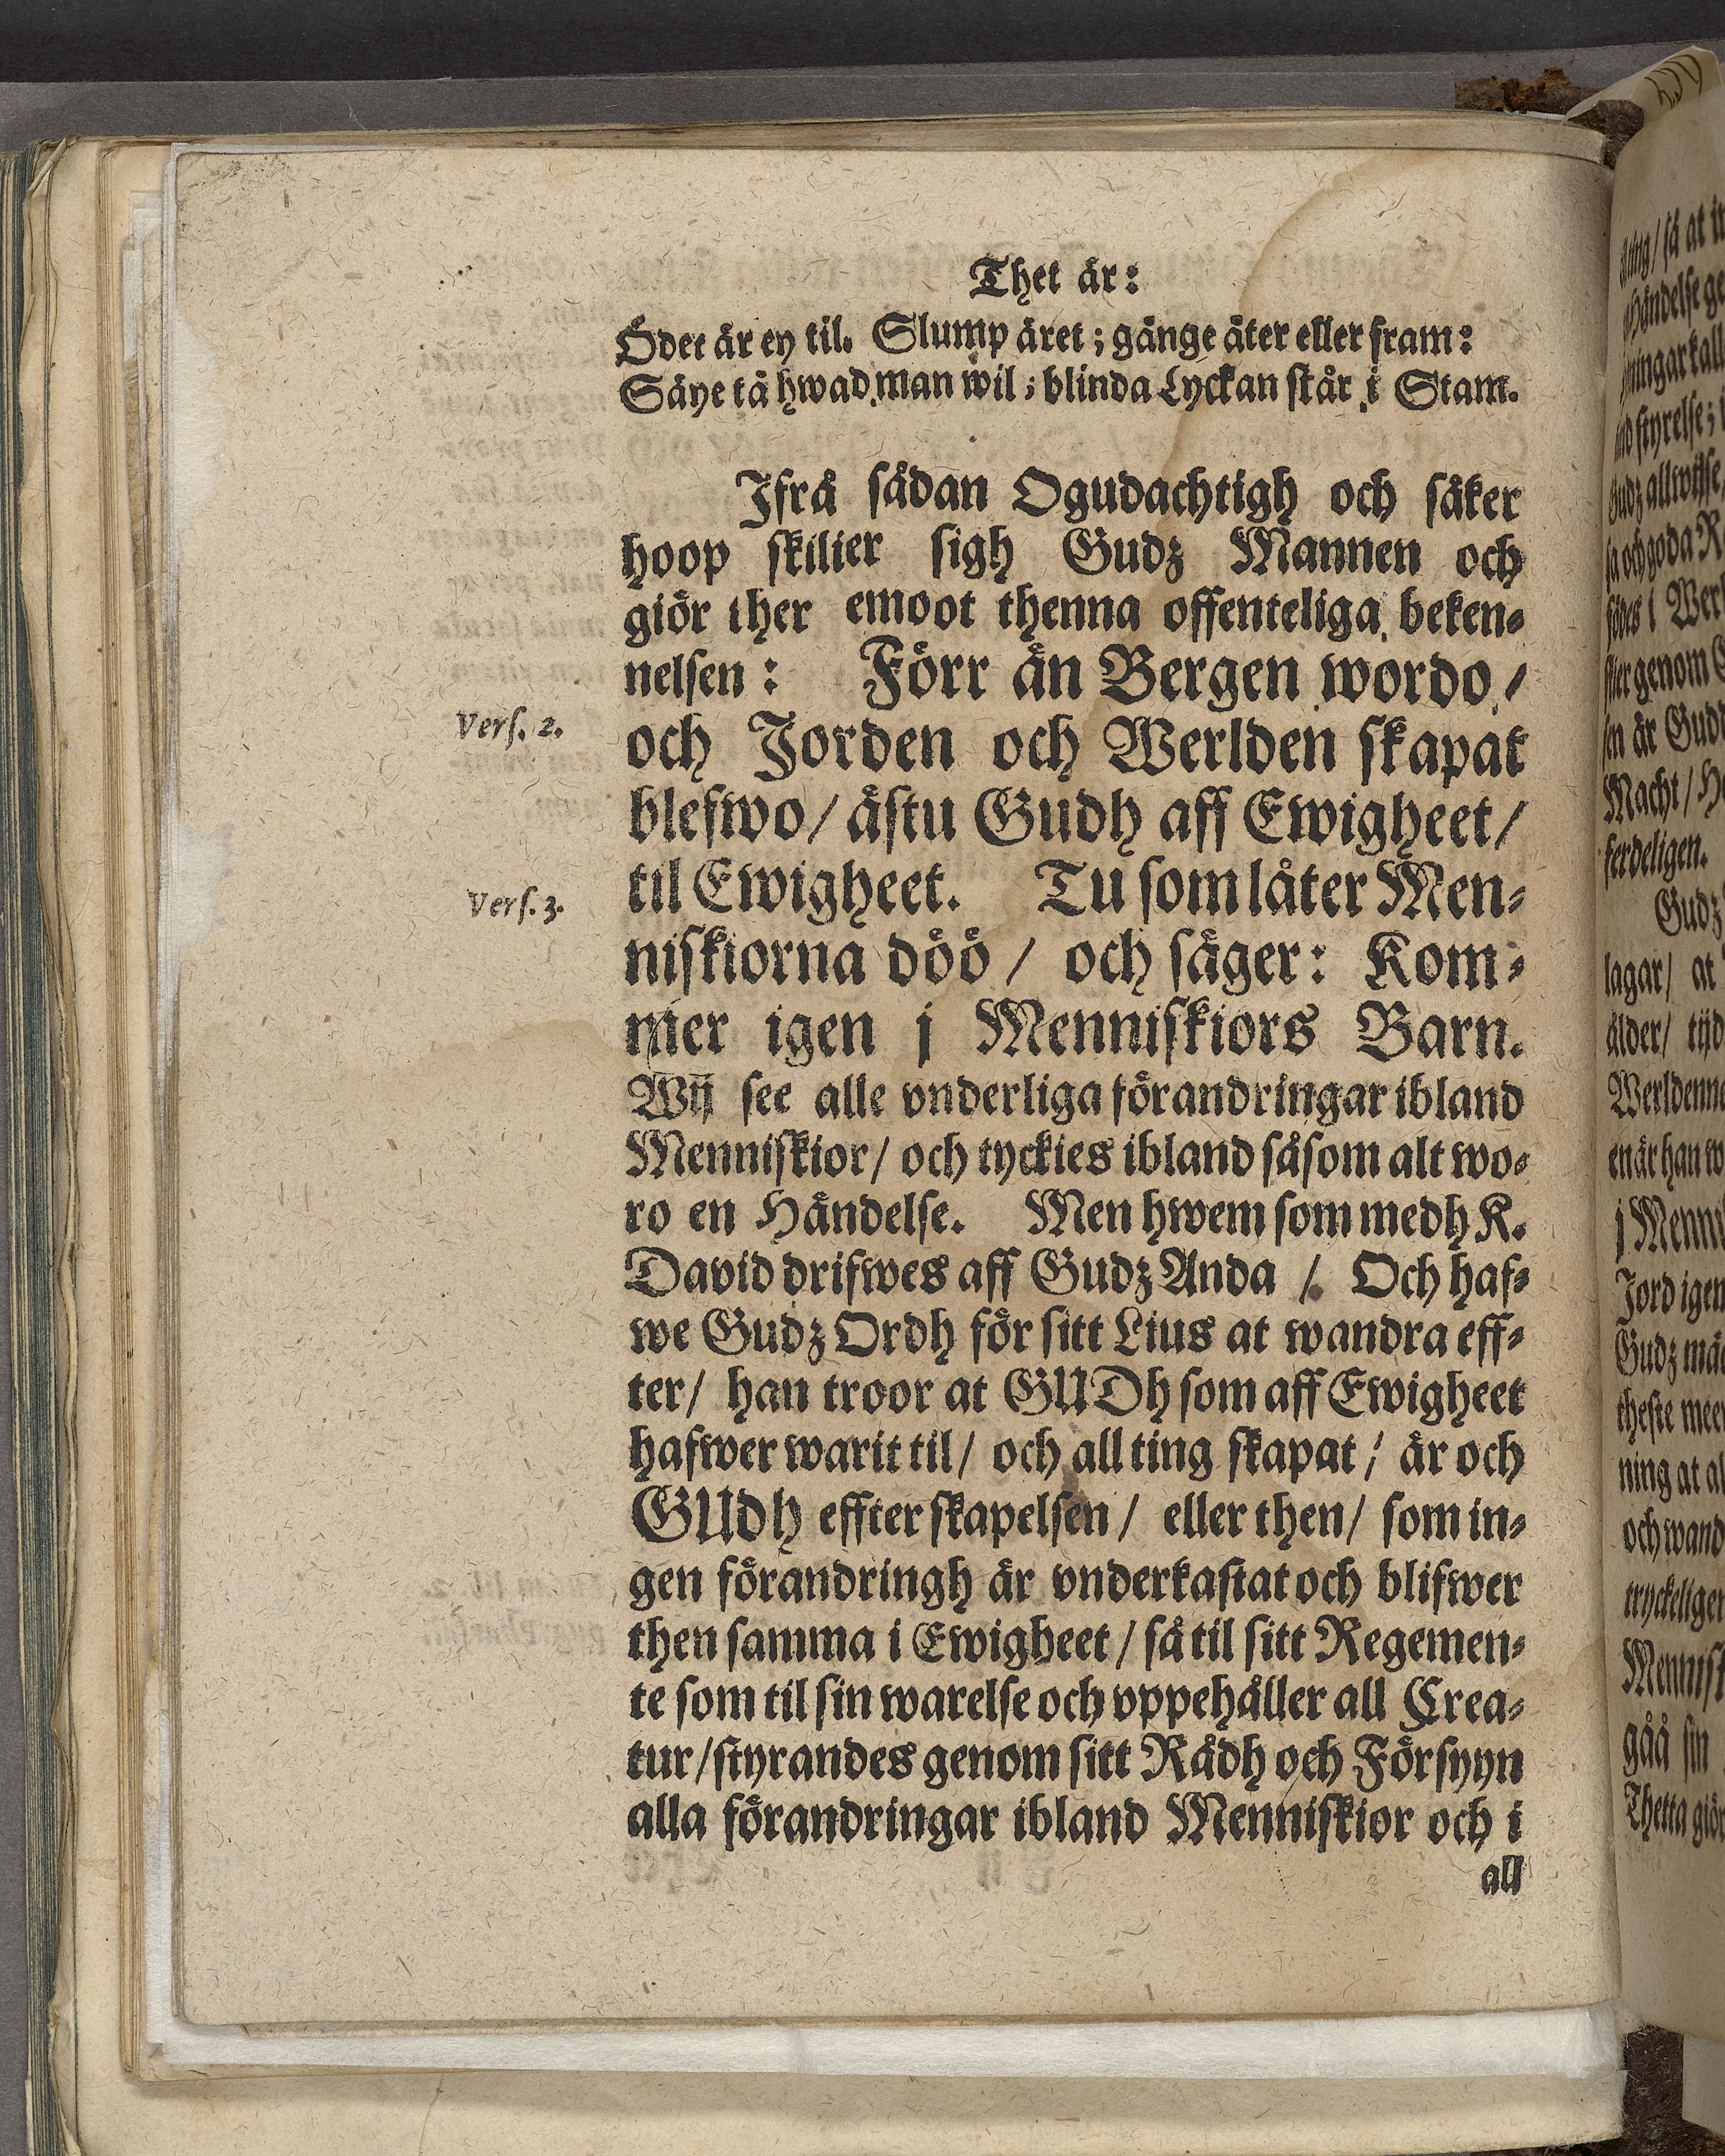 Thet är:
Ödet är ey til. Slump äret; gånge åter eller fram:
Säye tå hwad man wil; blinda Lyckan står i Stam.
Ifrå sådan Ogudachtigh och säker
hoop skilier sigh Gudz Mannen och
giör ther emoot thenna offenteliga beken-
nelsen: Förr än Bergen wordo /
Vers. 2.
och Jorden och Werlden skapat
blefwo / ästu Gudh aff Ewigheet /
Vers. 3.
til Ewigheet. Tu som låter Men-
niskiorna döö / och säger: Kom-
mer igen j Menniskiors Barn.
Wij see alle vnderliga förandringar ibland
Menniskior / och tyckies ibland såsom alt wo-
ro en Händelse. Men hwem som medh K.
David drifwes aff Gudz Anda /. Och haf-
we Gudz Ordh för sitt Lius at wandra eff-
ter / han troor at GUDh som aff Ewigheet
hafwer warit til / och all ting skapat / är och
GUdh effter skapelsen / eller then / som in-
gen förandringh är vnderkastat och blifwer
then samma i Ewigheet / så til sitt Regemen-
te som til sin warelse och vppehåller all Crea-
tur / styrandes genom sitt Rådh och Försyyn
alla förandringar ibland Menniskior och i
all